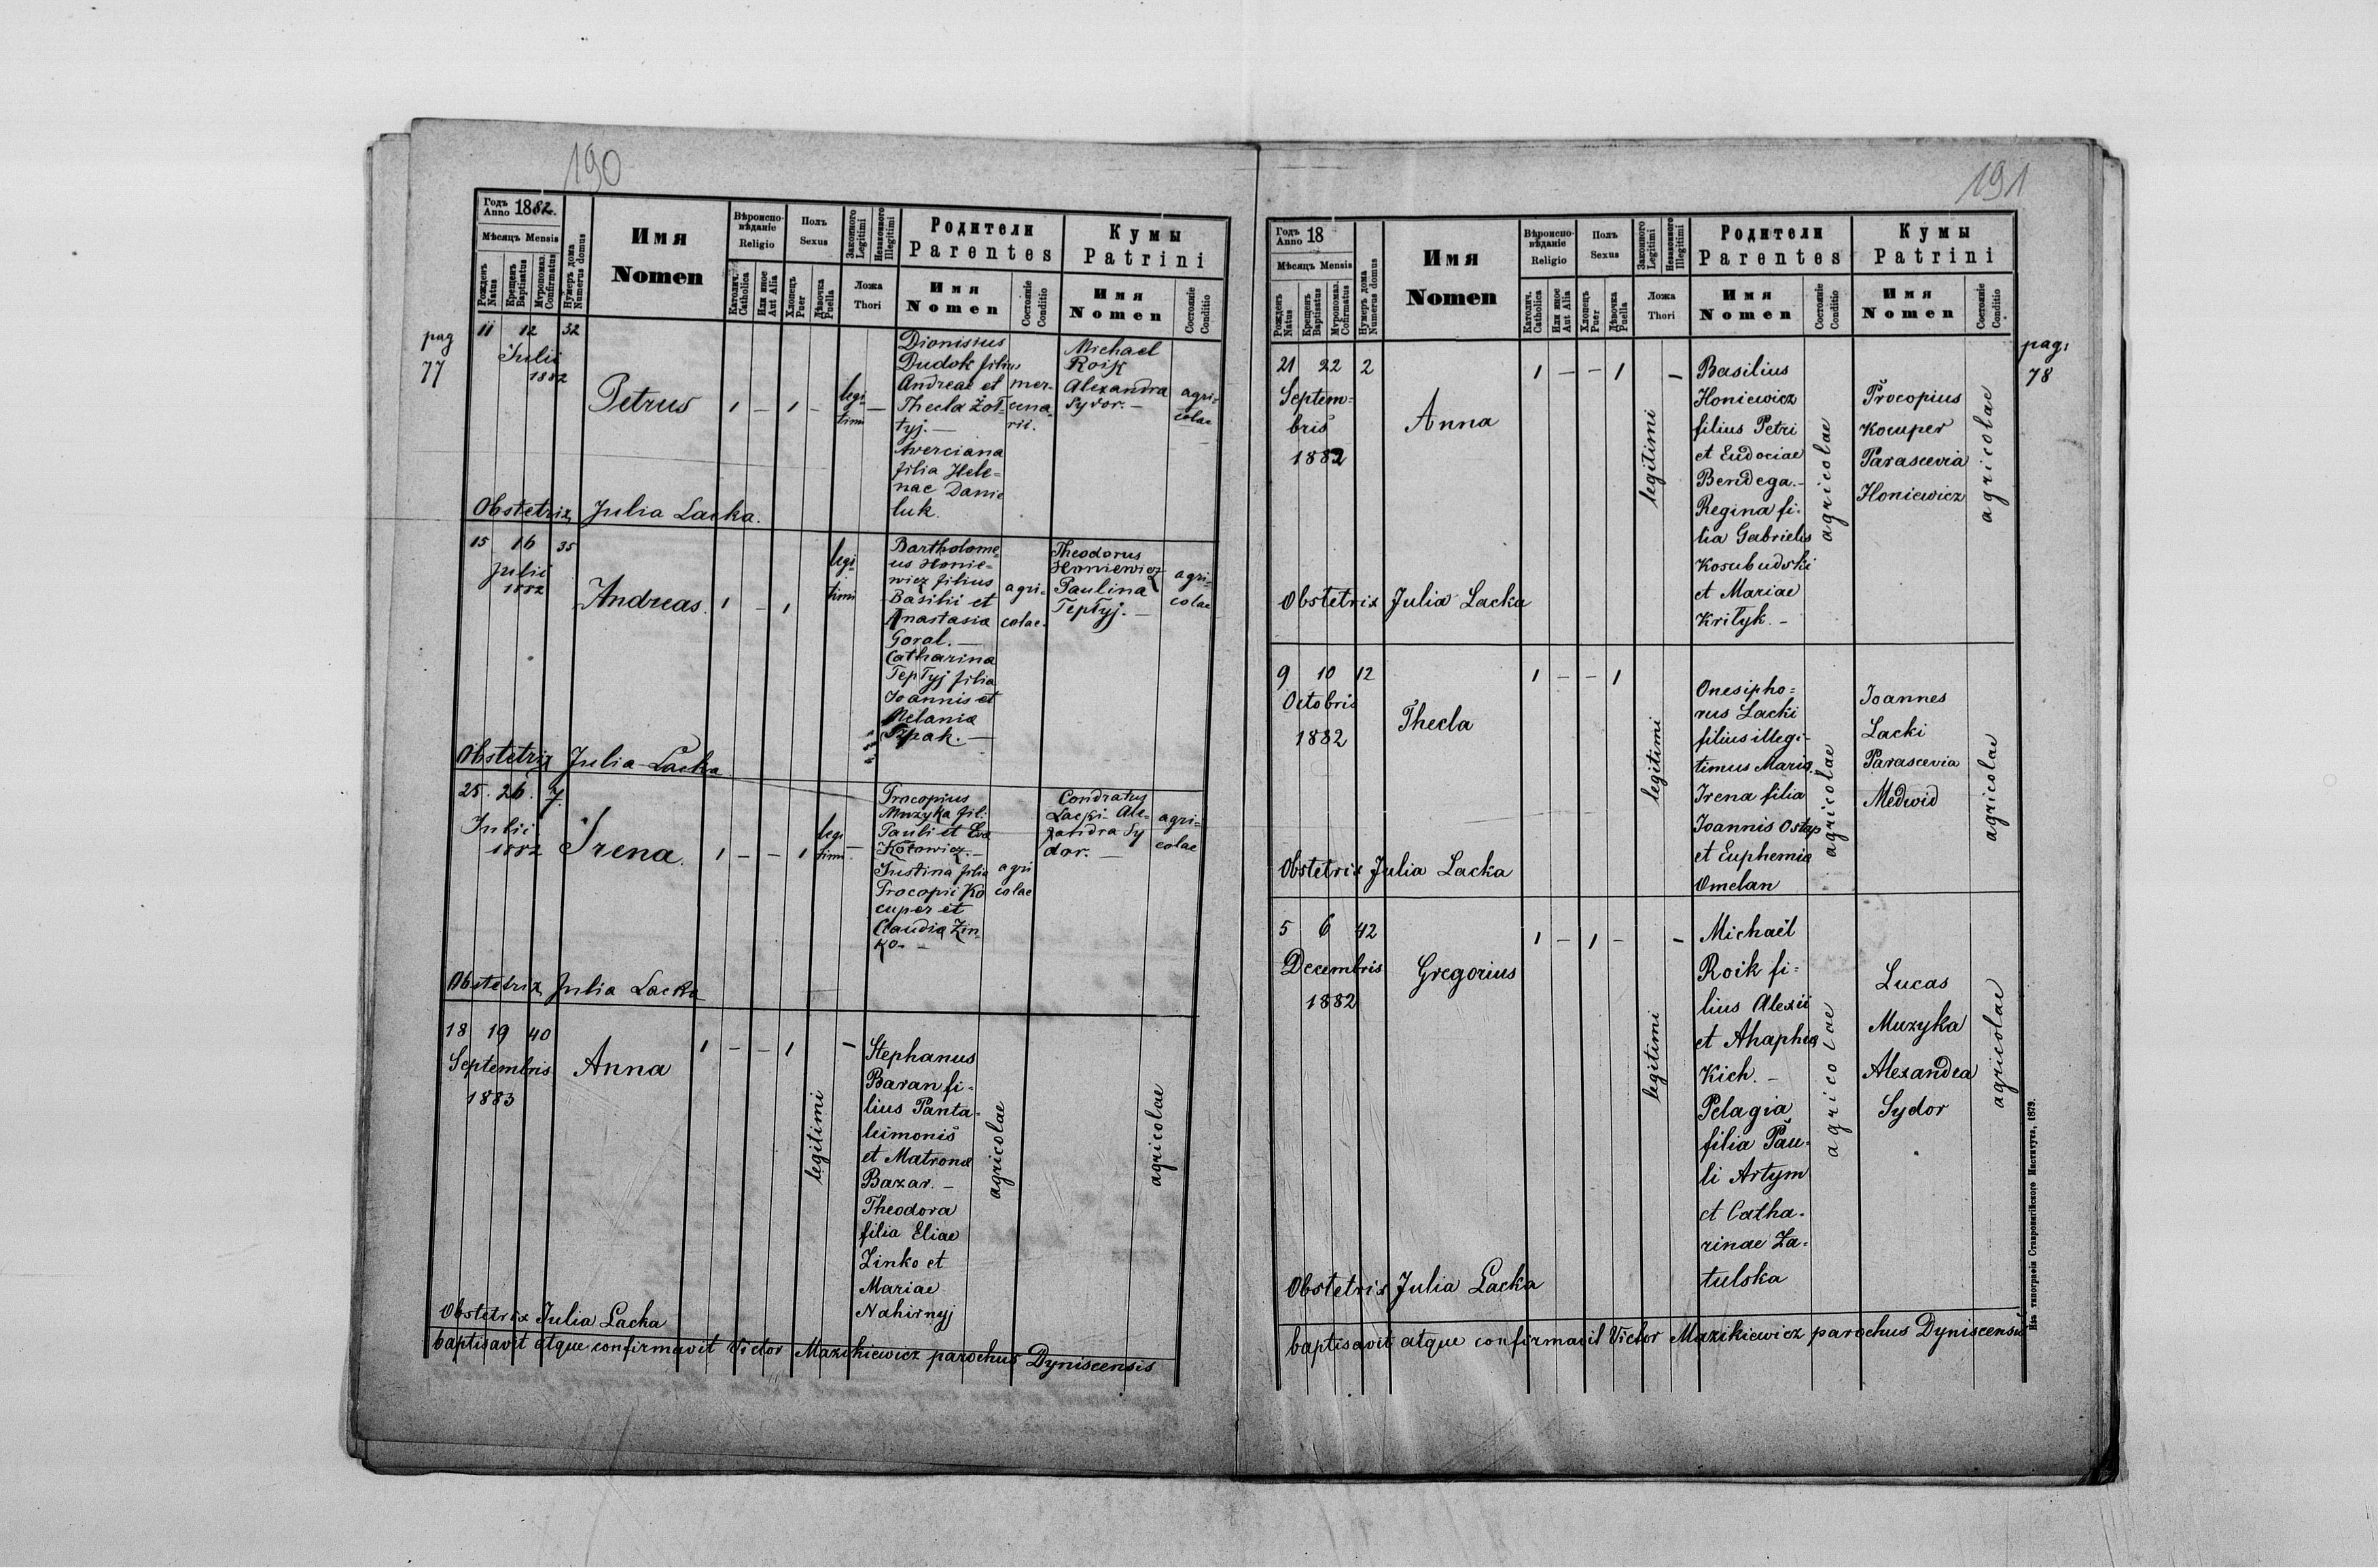 190
Годъ Anno 1882.
Мѣсяцъ Mensis
Рожденъ Natus
Крещенъ Baptisatus
Мѵропомаз. Confirmatus
Нумеръ дома Numerus domus
Имя
Nomen
Вѣроиспо-
вѣданіе
Religio
Католич. Catholica
Или иное Aut Alia
Полъ
Sexus
Хлопецъ Puer
Дѣвочка Puella
Законного Legitimi
Незаконного Illegitimi
Ложа
Thori
Родители
Parentes
Имя
Nomen
Состояніе Conditio
Кумы
Patrini
Имя
Nomen
Состояніе Conditio
pag
77
11 12 32
Julii
1882
Petrus
1 – 1 –
legi-
timi
–
Dionisius
Dudok filius
Andreae et
Thecla Żoł-
tyj. –
Awerciana
filia Hele=
nae Danie
luk.
mer-
cena-
rii.
Michael
Roik
Alexandra
Sydor. –
agri-
colae
Obstetrix Julia Lacka.
15 16 35
Julii
1882
Andreas.
1 – 1
legi-
timi
Bartholome=
us Honie=
wicz filius
Basilii et
Anastasia
Goral. –
Catharina
Tepłyj filia
Joannis et
Melania
agri-
colae.
Theodorus
Honiewicz
Paulina
Tepłyj. –
agri-
colae
Obstetrix Julia Lacka
25. 26. 7.
Julii
1882
Irena.
1 – – 1
legi
timi
–
Procopius
Muzyka fil:
Pauli et Eva
Kotowicz. –
Justina filia
Procopii Ko
cuper et
Claudia Zin-
ko. –
agri
colae
Condratus
Lacki – Ale=
xandra Sy
dor. –
agri-
colae
Obstetrix Julia Lacka
18 19 40
Septembris
1883
Anna
1 – – 1
legitimi
–
Stephanus
Baran fi-
lius Panta-
leimonis
et Matrona
Bazar. –
Theodora
filia Eliae
Zinko et
Mariae
Nahirnyj
agricolae
agricolae
Obstetrix Julia Lacka
baptisavit atque confirmavit Victor Mazikiewicz parochus Dyniscensis
191
Годъ Anno 18
Мѣсяцъ Mensis
Рожденъ Natus
Крещенъ Baptisatus
Мѵропомаз. Confirmatus
Нумеръ дома Numerus domus
Имя
Nomen
Вѣроиспо-
вѣданіе
Religio
Католич. Catholica
Или иное Aut Alia
Полъ
Sexus
Хлопецъ Puer
Дѣвочка Puella
Законного Legitimi
Незаконного Illegitimi
Ложа
Thori
Родители
Parentes
Имя
Nomen
Состояніе Conditio
Кумы
Patrini
Имя
Nomen
Состояніе Conditio
pag:
78
21 22 2
Septem=
bris
1882
Anna
1 – – 1
legitimi
–
Basilius
Honiewicz
filius Petri
et Eudociae
Bendega. –
Regina fi-
lia Gabrielis
Kosubudski
et Mariae
Kritÿk. –
agricolae
Procopius
Kocuper
Parascevia
Honiewicz
agricolae
Obstetrix Julia Lacka
9 10 12
Octobris
1882
Thecla
1 – – 1
legitimi
Onesipho=
rus Lacki
filius illegi-
timus Maria.
Irena filia
Joannis Ostap
et Euphemia
Omelan
agricolae
Joannes
Lacki
Parascevia
Medwid
agricolae
Obstetrix Julia Lacka
5 6 42
Decembris
1882
Gregorius
1 – 1 –
legitimi
–
Michaël
Roik fi=
lius Alexii
et Ahaphia
Kich. –
Pelagia
filia Pau-
li Artym
et Catha-
rinae Za=
tulska
agricolae
Lucas
Muzyka
Alexandra
Sydor
agricolae
Obstetrix Julia Lacka
baptisavit atque confirmavit Victor Mazikiewicz parochus Dyniscensis
Изъ типографіи Ставропигійского Института, 1879.